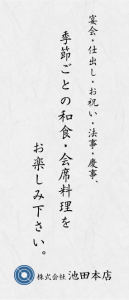 宴会・仕出し・お祝い・法事・慶事、
季節ごとの和食・会席料理を
お楽しみ下さい。
株式会社 池田本店